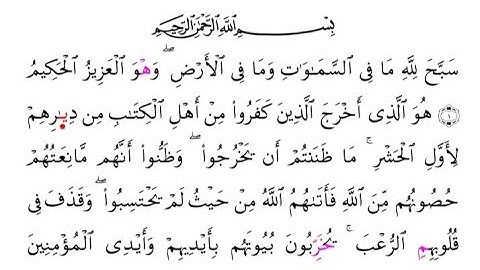 بِسْمِ ٱللَّهِ ٱلرَّحْمَٰنِ ٱلرَّحِيمِ
سَبَّحَ لِلَّهِ مَا فِى ٱلسَّمَٰوَٰتِ وَمَا فِى ٱلْأَرْضِ ۖ وَهْوَ ٱلْعَزِيزُ ٱلْحَكِيمُ
۝١ هُوَ ٱلَّذِى أَخْرَجَ ٱلَّذِينَ كَفَرُوا۟ مِنْ أَهْلِ ٱلْكِتَٰبِ مِن دِيَٰرِهِمْ
لِأَوَّلِ ٱلْحَشْرِ ۚ مَا ظَنَنتُمْ أَن يَخْرُجُوا۟ ۖ وَظَنُّوا۟ أَنَّهُم مَّانِعَتُهُمْ
حُصُونُهُم مِّنَ ٱللَّهِ فَأَتَىٰهُمُ ٱللَّهُ مِنْ حَيْثُ لَمْ يَحْتَسِبُوا۟ ۖ وَقَذَفَ فِى
قُلُوبِهِمِ ٱلرُّعْبَ ۚ يُخَرِّبُونَ بُيُوتَهُم بِأَيْدِيهِمْ وَأَيْدِى ٱلْمُؤْمِنِينَ